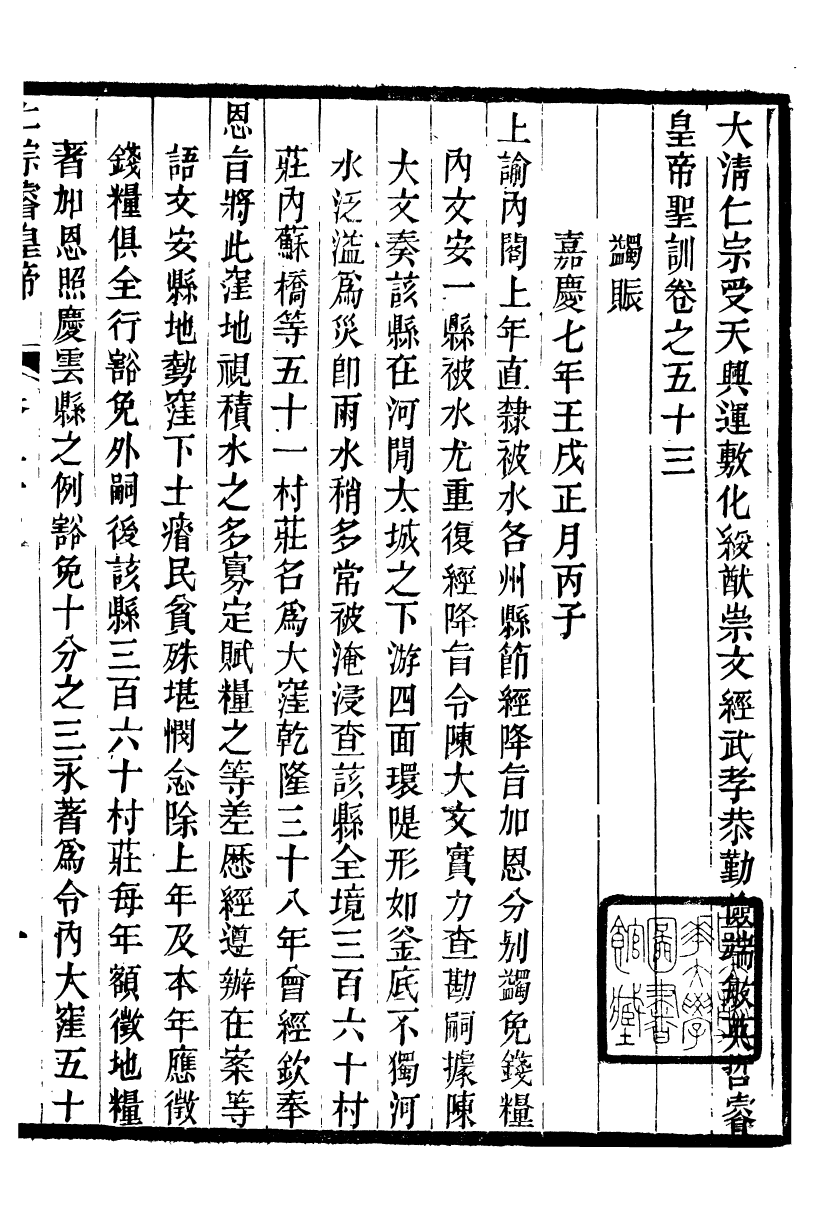 大清仁宗受天興運敷化綏猷崇文經武孝恭勤儉端敏英哲睿
皇帝聖訓卷之五十三
蠲賑
嘉慶七年壬戌正月丙子
上諭內閣上年直隸被水各州縣節經降旨加恩分別蠲免錢糧
內文安一縣被水尤重復經降旨令陳大文實力查勘嗣據陳
大文奏該縣在河閒大城之下游四面環隄形如釜底不獨河
水泛溢爲災卽雨水稍多常被淹浸查該縣全境三百六十村
莊內蘇橋等五十一村莊名爲大窪乾隆三十八年曾經欽奉
恩旨將此窪地視積水之多寡定賦糧之等差歷經遵辦在案等
語文安縣地勢窪下土瘠民貧殊堪憫念除上年及本年應徵
錢糧俱全行豁免外嗣後該縣三百六十村莊每年額徵地糧
著加恩照慶雲縣之例豁免十分之三永著爲令內大窪五十
仁宗睿皇帝